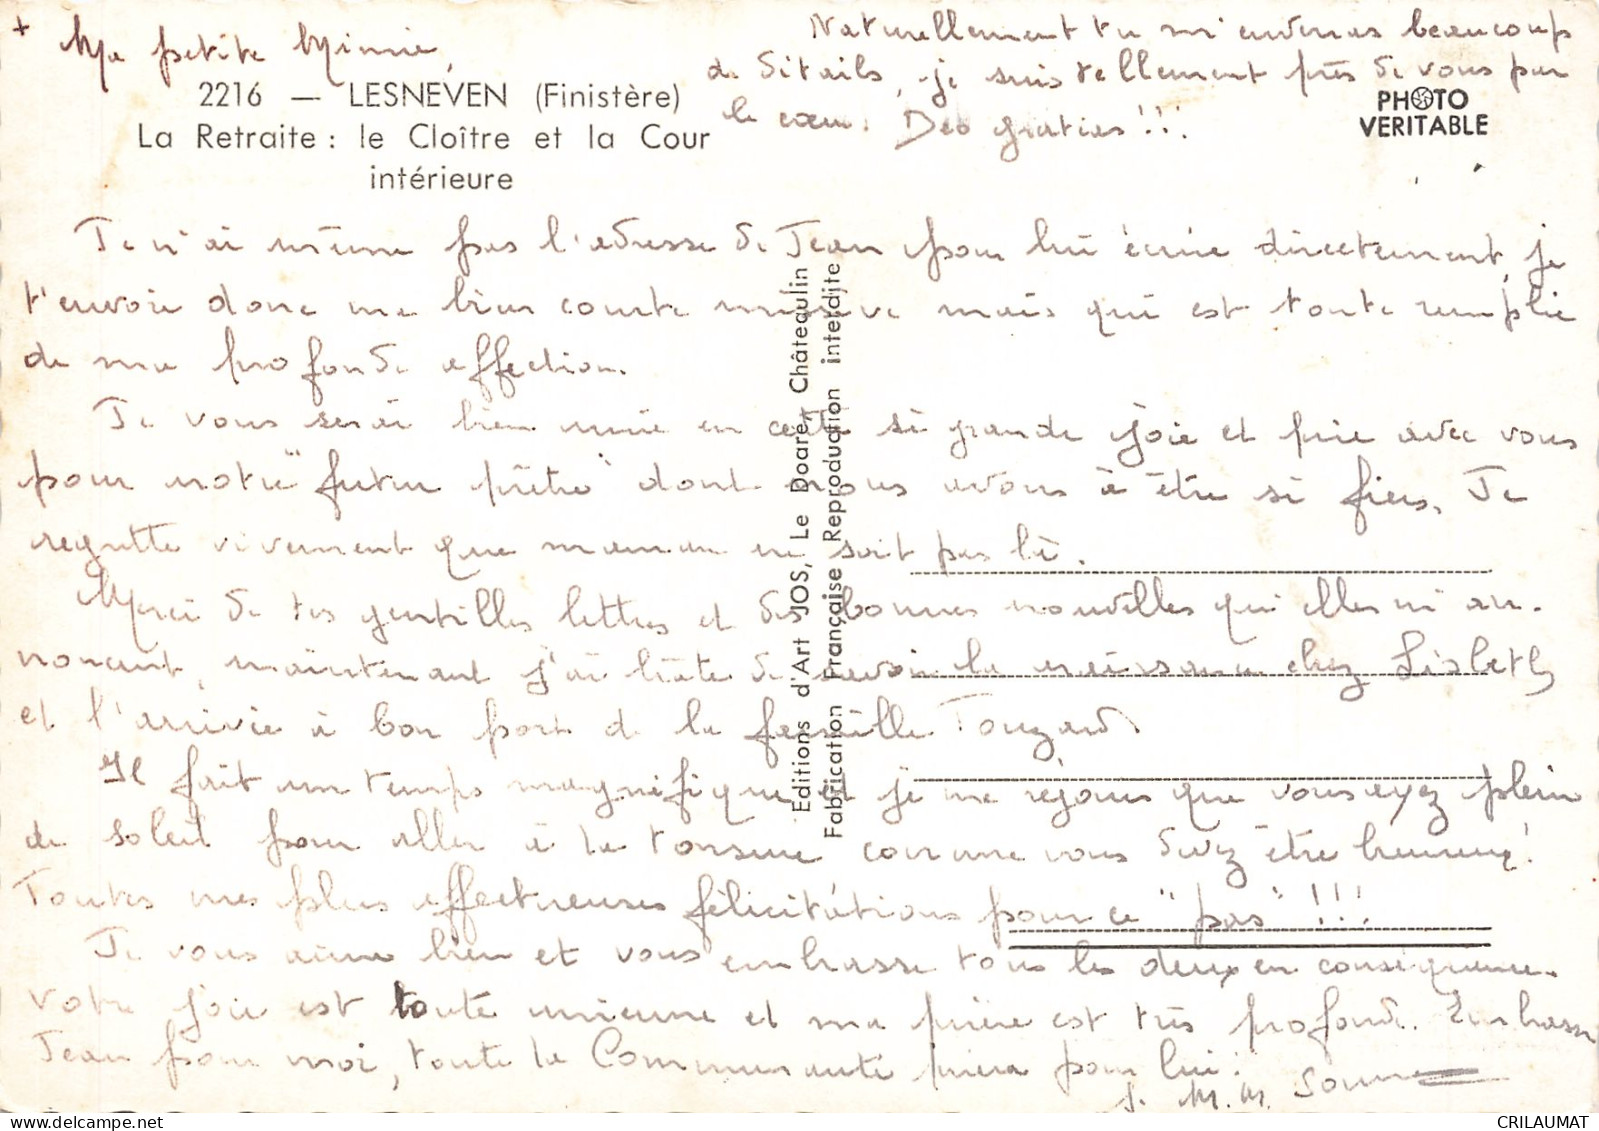 + Ma petite Minie,
2216 — LESNEVEN (Finistère)
La Retraite : le Cloître et la Cour
intérieure
Naturellement tu m'enverras beaucoup
de détails, je suis tellement près de vous par
le cœur. Deo gratias !!!
PHOTO
VERITABLE
Je n'ai même pas l'adresse de Jean pour lui écrire directement, je
t'envoie donc ma bien courte missive mais qui est toute remplie
de ma profonde affection.
Je vous serai bien unie en cette si grande joie et prie avec vous
pour notre "futur prêtre" dont nous avons à être si fiers. Je
regrette vivement que maman en soit pas là.
Merci de tes gentilles lettres et des bonnes nouvelles qu'elles m'an-
noncent, maintenant j'ai hâte de savoir la naissance chez Lisbeth
et l'arrivée à bon port de la famille Touzard
Il fait un temps magnifique et je me réjouis que vous ayez plein
de soleil pour aller à la tonsure comme vous devez être heureux !
Toutes mes plus affectueuses félicitations pour ce "pas" !!!
Je vous aime bien et vous embrasse tous les deux en conséquence.
Votre joie est toute mienne et ma prière est très profonde. Embrasse
Jean pour moi, toute la Communauté priera pour lui.
S. M. M.
Editions d'Art JOS, Le Doaré, Châteaulin
Fabrication Française Reproduction interdite
CRILAUMAT